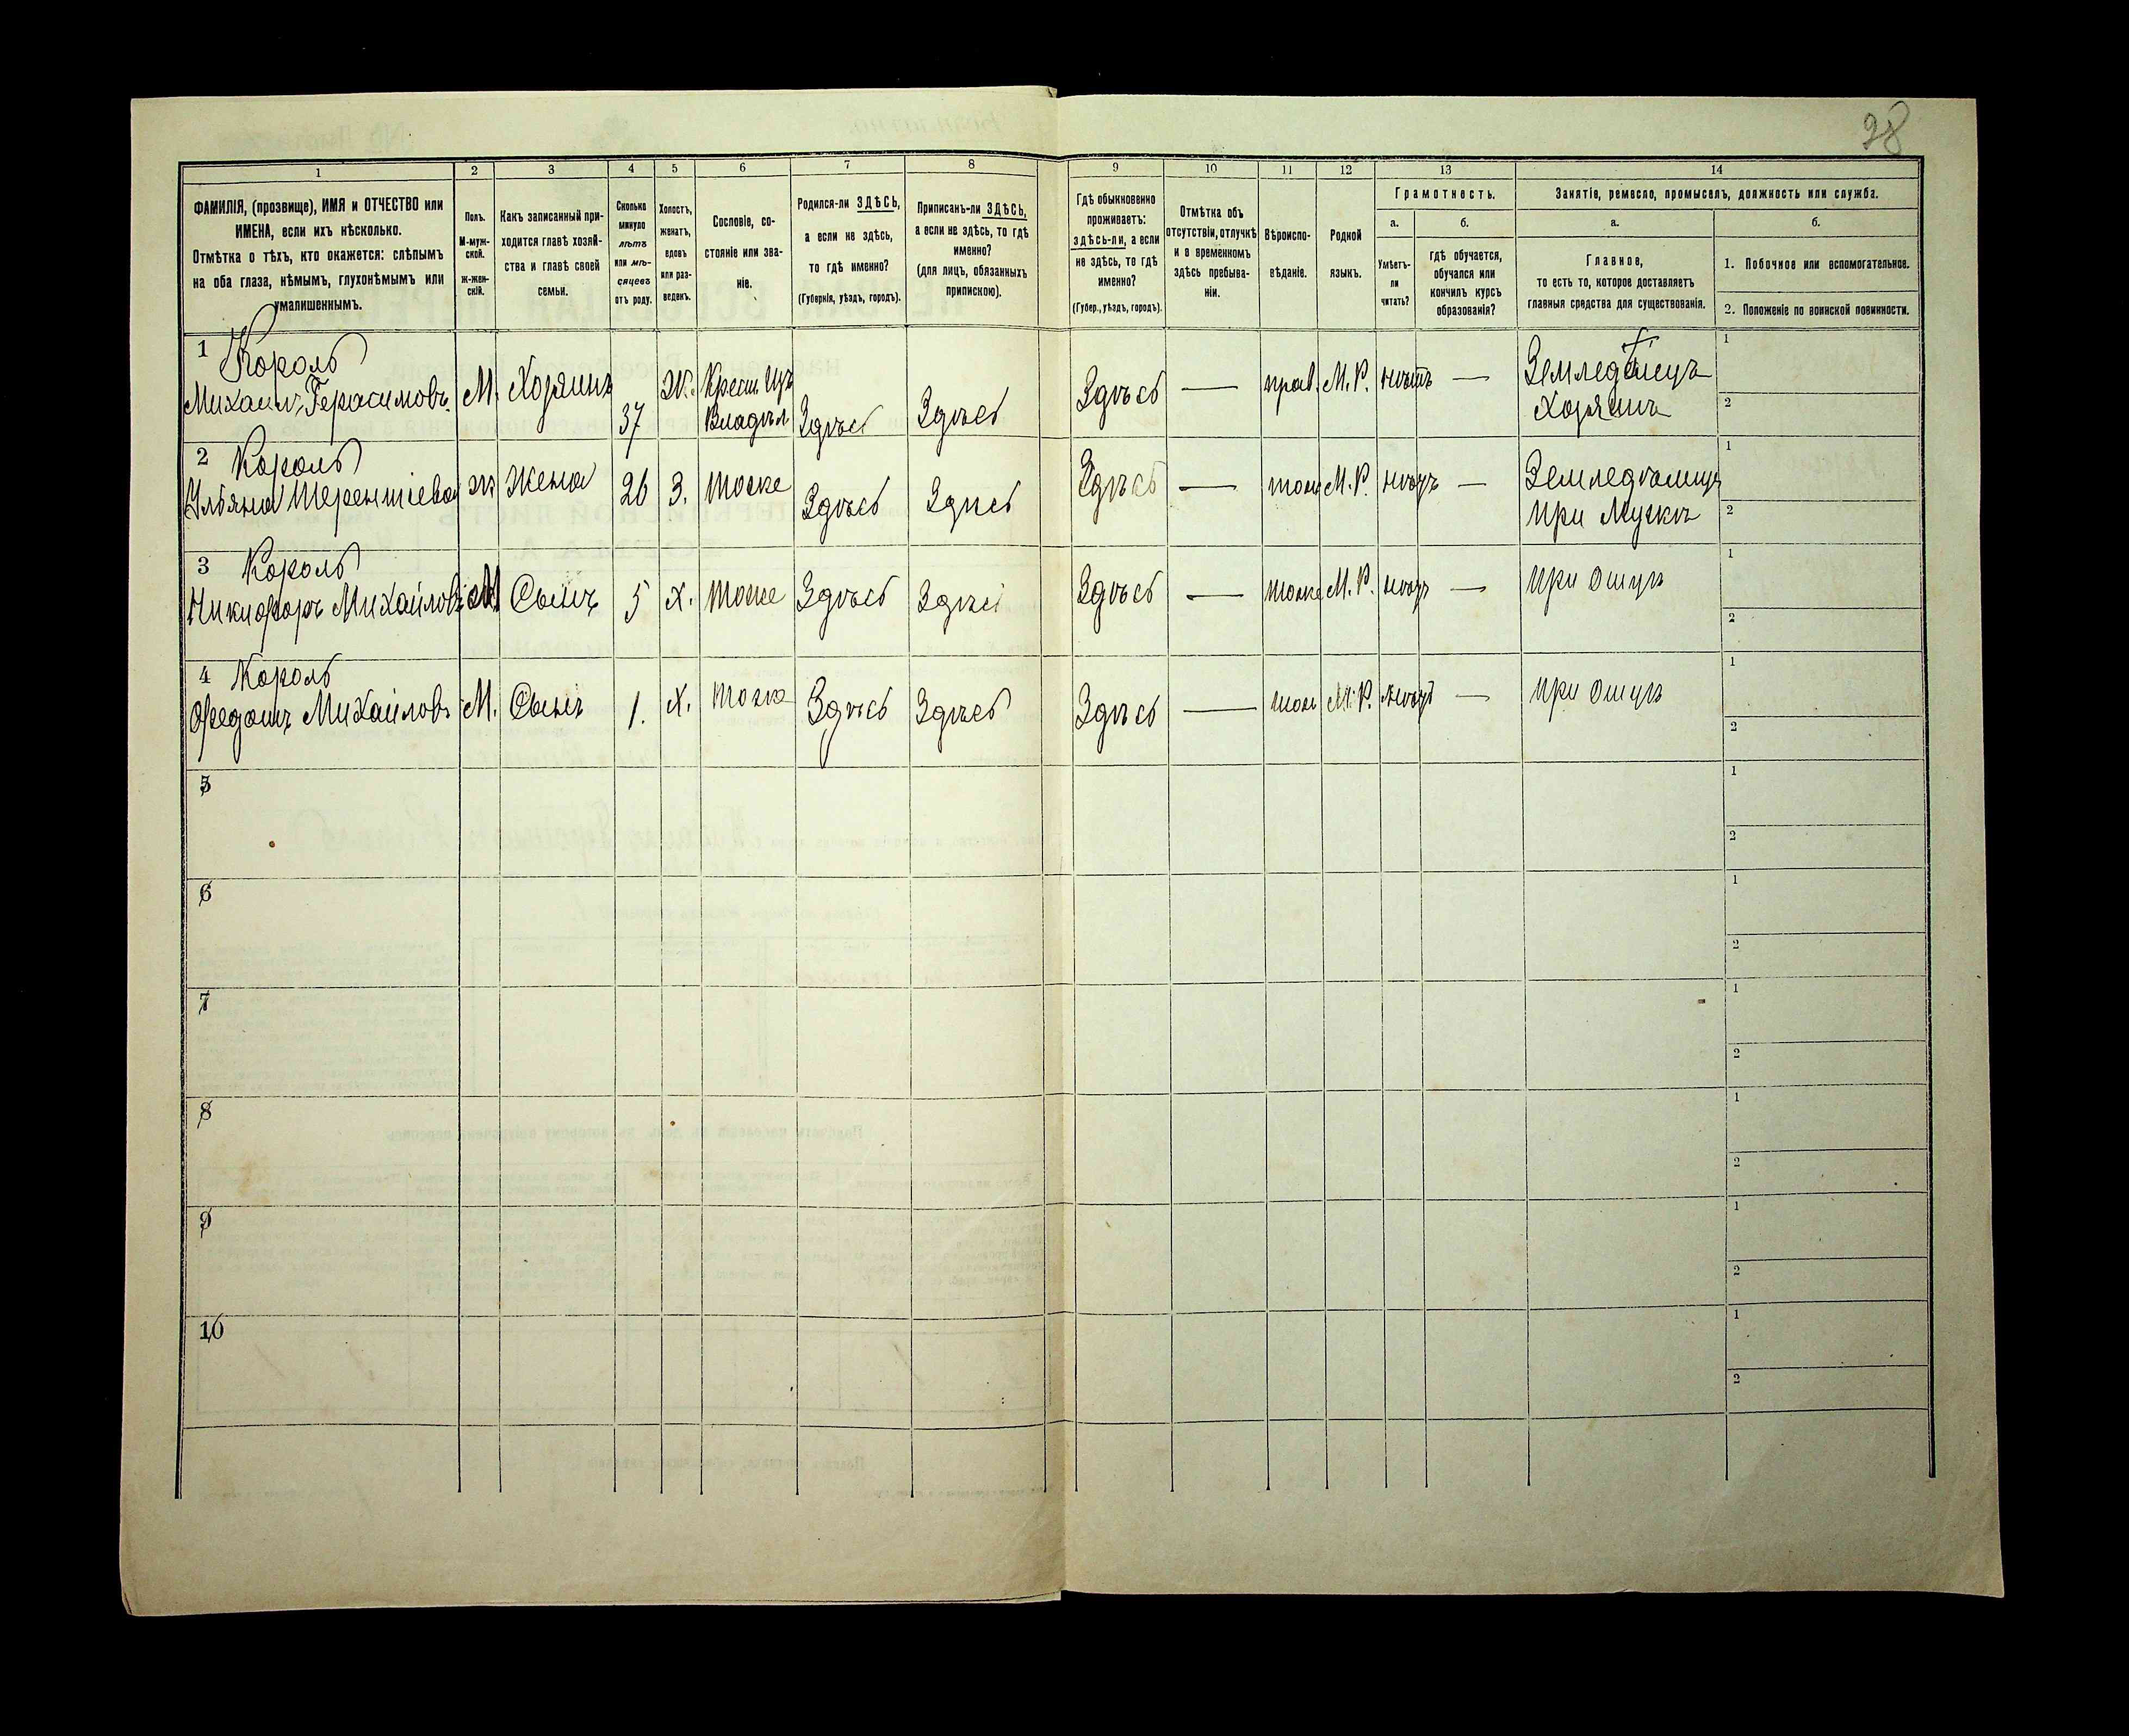 98
1 2 3 4 5 6 7 8 9 10 11 12 13 14
ФАМИЛІЯ, (прозвище), ИМЯ и ОТЧЕСТВО или
ИМЕНА, если ихъ нѣсколько.
Отмѣтка о тѣхъ, кто окажется: слѣпымъ
на оба глаза, нѣмымъ, глухонѣмымъ или
умалишеннымъ.
Полъ.
М-муж-
ской.
Ж-жен-
скій.
Какъ записанный при-
ходится главѣ хозяй-
ства и главѣ своей
семьи.
Сколько
минуло
лѣтъ
или мѣ-
сяцевъ
отъ роду.
Холостъ,
женатъ,
вдовъ
или раз-
веденъ.
Сословіе, со-
стояніе или зва-
ніе.
Родился-ли ЗДѢСЬ,
а если не здѣсь,
то гдѣ именно?
(Губернія, уѣздъ, городъ).
Приписанъ-ли ЗДѢСЬ,
а если не здѣсь, то гдѣ
именно?
(для лицъ, обязанныхъ
припискою).
Гдѣ обыкновенно
проживаетъ:
здѣсь-ли, а если
не здѣсь, то гдѣ
именно?
(Губер., уѣздъ, городъ).
Отмѣтка объ
отсутствіи, отлучкѣ
и о временномъ
здѣсь пребыва-
ніи.
Вѣроиспо-
вѣданіе.
Родной
языкъ.
Грамотность.
а.
Умѣетъ-
ли
читать?
б.
гдѣ обучается,
обучался или
кончилъ курсъ
образованія?
Занятіе, ремесло, промыселъ, должность или служба.
а.
Главное,
то есть то, которое доставляетъ
главныя средства для существованія.
б.
1. Побочное или вспомогательное.
2. Положеніе по воинской повинности.
1 Король
Михаилъ Герасимовъ М. Хозяинъ 37 Ж. Крест. изъ Владѣл Здѣсь Здѣсь Здѣсь — прав. М.Р. нѣтъ — Земледѣлецъ
Хозяинъ
1
2
2 Король
Ульяна Терентіева Ж Жена 26 З. тоже Здѣсь Здѣсь Здѣсь — тоже М.Р. нѣтъ — Земледѣлецъ
при Мужѣ
1
2
3 Король
Никифоръ Михайловъ М Сынъ 5 Х. тоже Здѣсь Здѣсь Здѣсь — тоже М.Р. нѣтъ — при Отцѣ
1
2
4 Король
Федотъ Михайловъ М. Сынъ 1. Х. тоже Здѣсь Здѣсь Здѣсь — тоже М.Р. нѣтъ — при Отцѣ
1
2
5
1
2
6
1
2
7
1
2
8
1
2
9
1
2
10
1
2